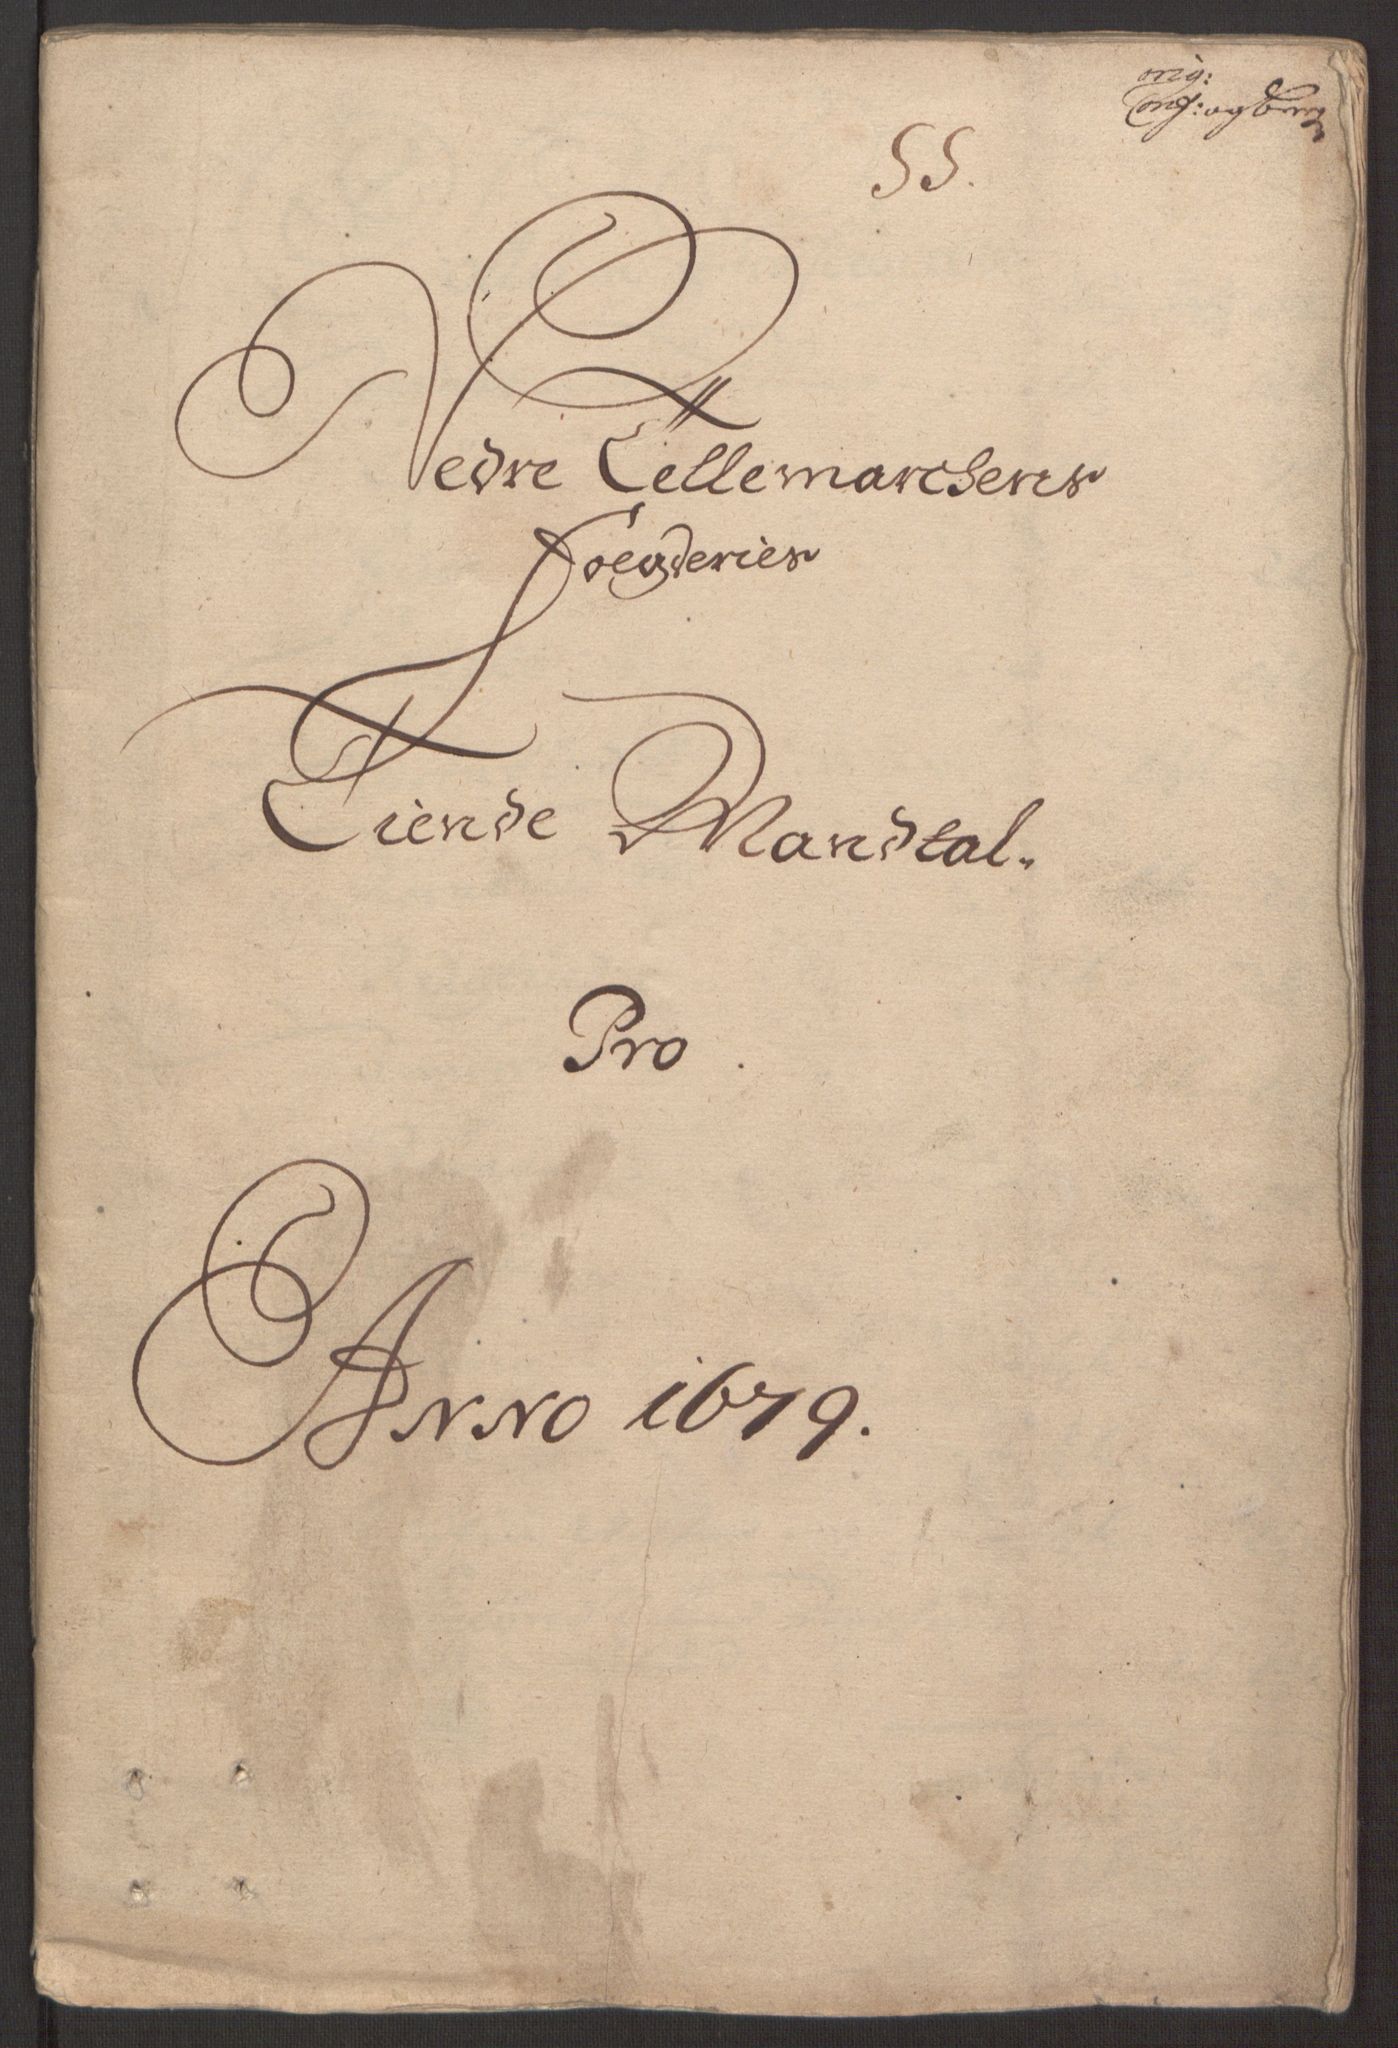 orig:
Conf: og
SS.
Nedre Tellemarchens
Foegderies
Tiende Mandtal.
Pro
Anno 1679.